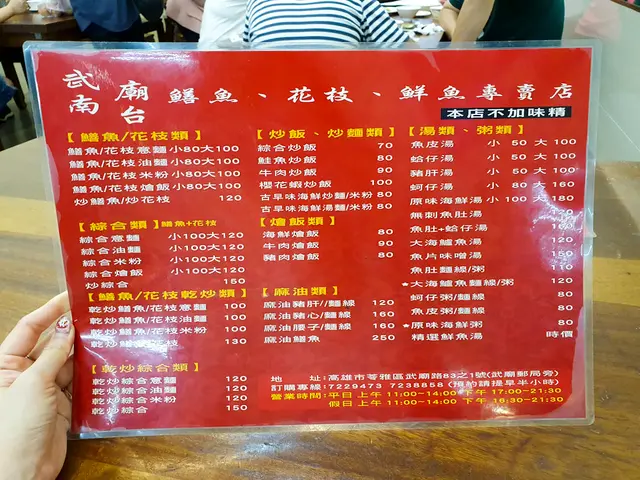 武廟
南台
鱔魚、花枝、鮮魚專賣店
本店不加味精
【鱔魚/花枝類】
鱔魚/花枝意麵 小80大100
鱔魚/花枝油麵 小80大100
鱔魚/花枝米粉 小80大100
鱔魚/花枝燴飯 小80大100
炒鱔魚/炒花枝 120
【綜合類】鱔魚+花枝
綜合意麵 小100大120
綜合油麵 小100大120
綜合米粉 小100大120
綜合燴飯 小100大120
炒綜合 150
【鱔魚/花枝乾炒類】
乾炒鱔魚/花枝意麵 100
乾炒鱔魚/花枝油麵 100
乾炒鱔魚/花枝米粉 100
乾炒鱔魚/花枝 130
【乾炒綜合類】
乾炒綜合意麵 120
乾炒綜合油麵 120
乾炒綜合米粉 120
乾炒綜合 150
【炒飯、炒麵類】
綜合炒飯 70
鮭魚炒飯 80
牛肉炒飯 90
櫻花蝦炒飯 100
古早味海鮮炒麵/米粉 80
古早味鱔魚炒麵/米粉 80
【燴飯類】
海鮮燴飯 80
牛肉燴飯 90
豬肉燴飯 80
【麻油類】
麻油豬肝/麵線 120
麻油豬心/麵線 160
麻油腰子/麵線 160
麻油鱔魚 250
【湯類、粥類】
魚皮湯 小 50 大 100
蛤仔湯 小 50 大 100
豬肝湯 小 50 大 100
蚵仔湯 小 80 大 160
原味海鮮湯 小 100 大 180
無刺魚肚湯 120
魚肚+蛤仔湯
大海鱸魚湯 120
魚片味噌湯 150
魚肚麵線/粥 110
★大海鱸魚麵線/粥 120
蚵仔粥/麵線 80
魚皮粥/麵線 80
★原味海鮮粥 80
精選鮮魚湯 時價
地 址:高雄市苓雅區武廟路83之1號(武廟郵局旁)
訂購專線:7229473 7238858 (預約請提早半小時)
營業時間:平日 上午 11:00~14:00 下午 17:00~21:30
假日 上午 11:00~14:00 下午 16:30~21:30